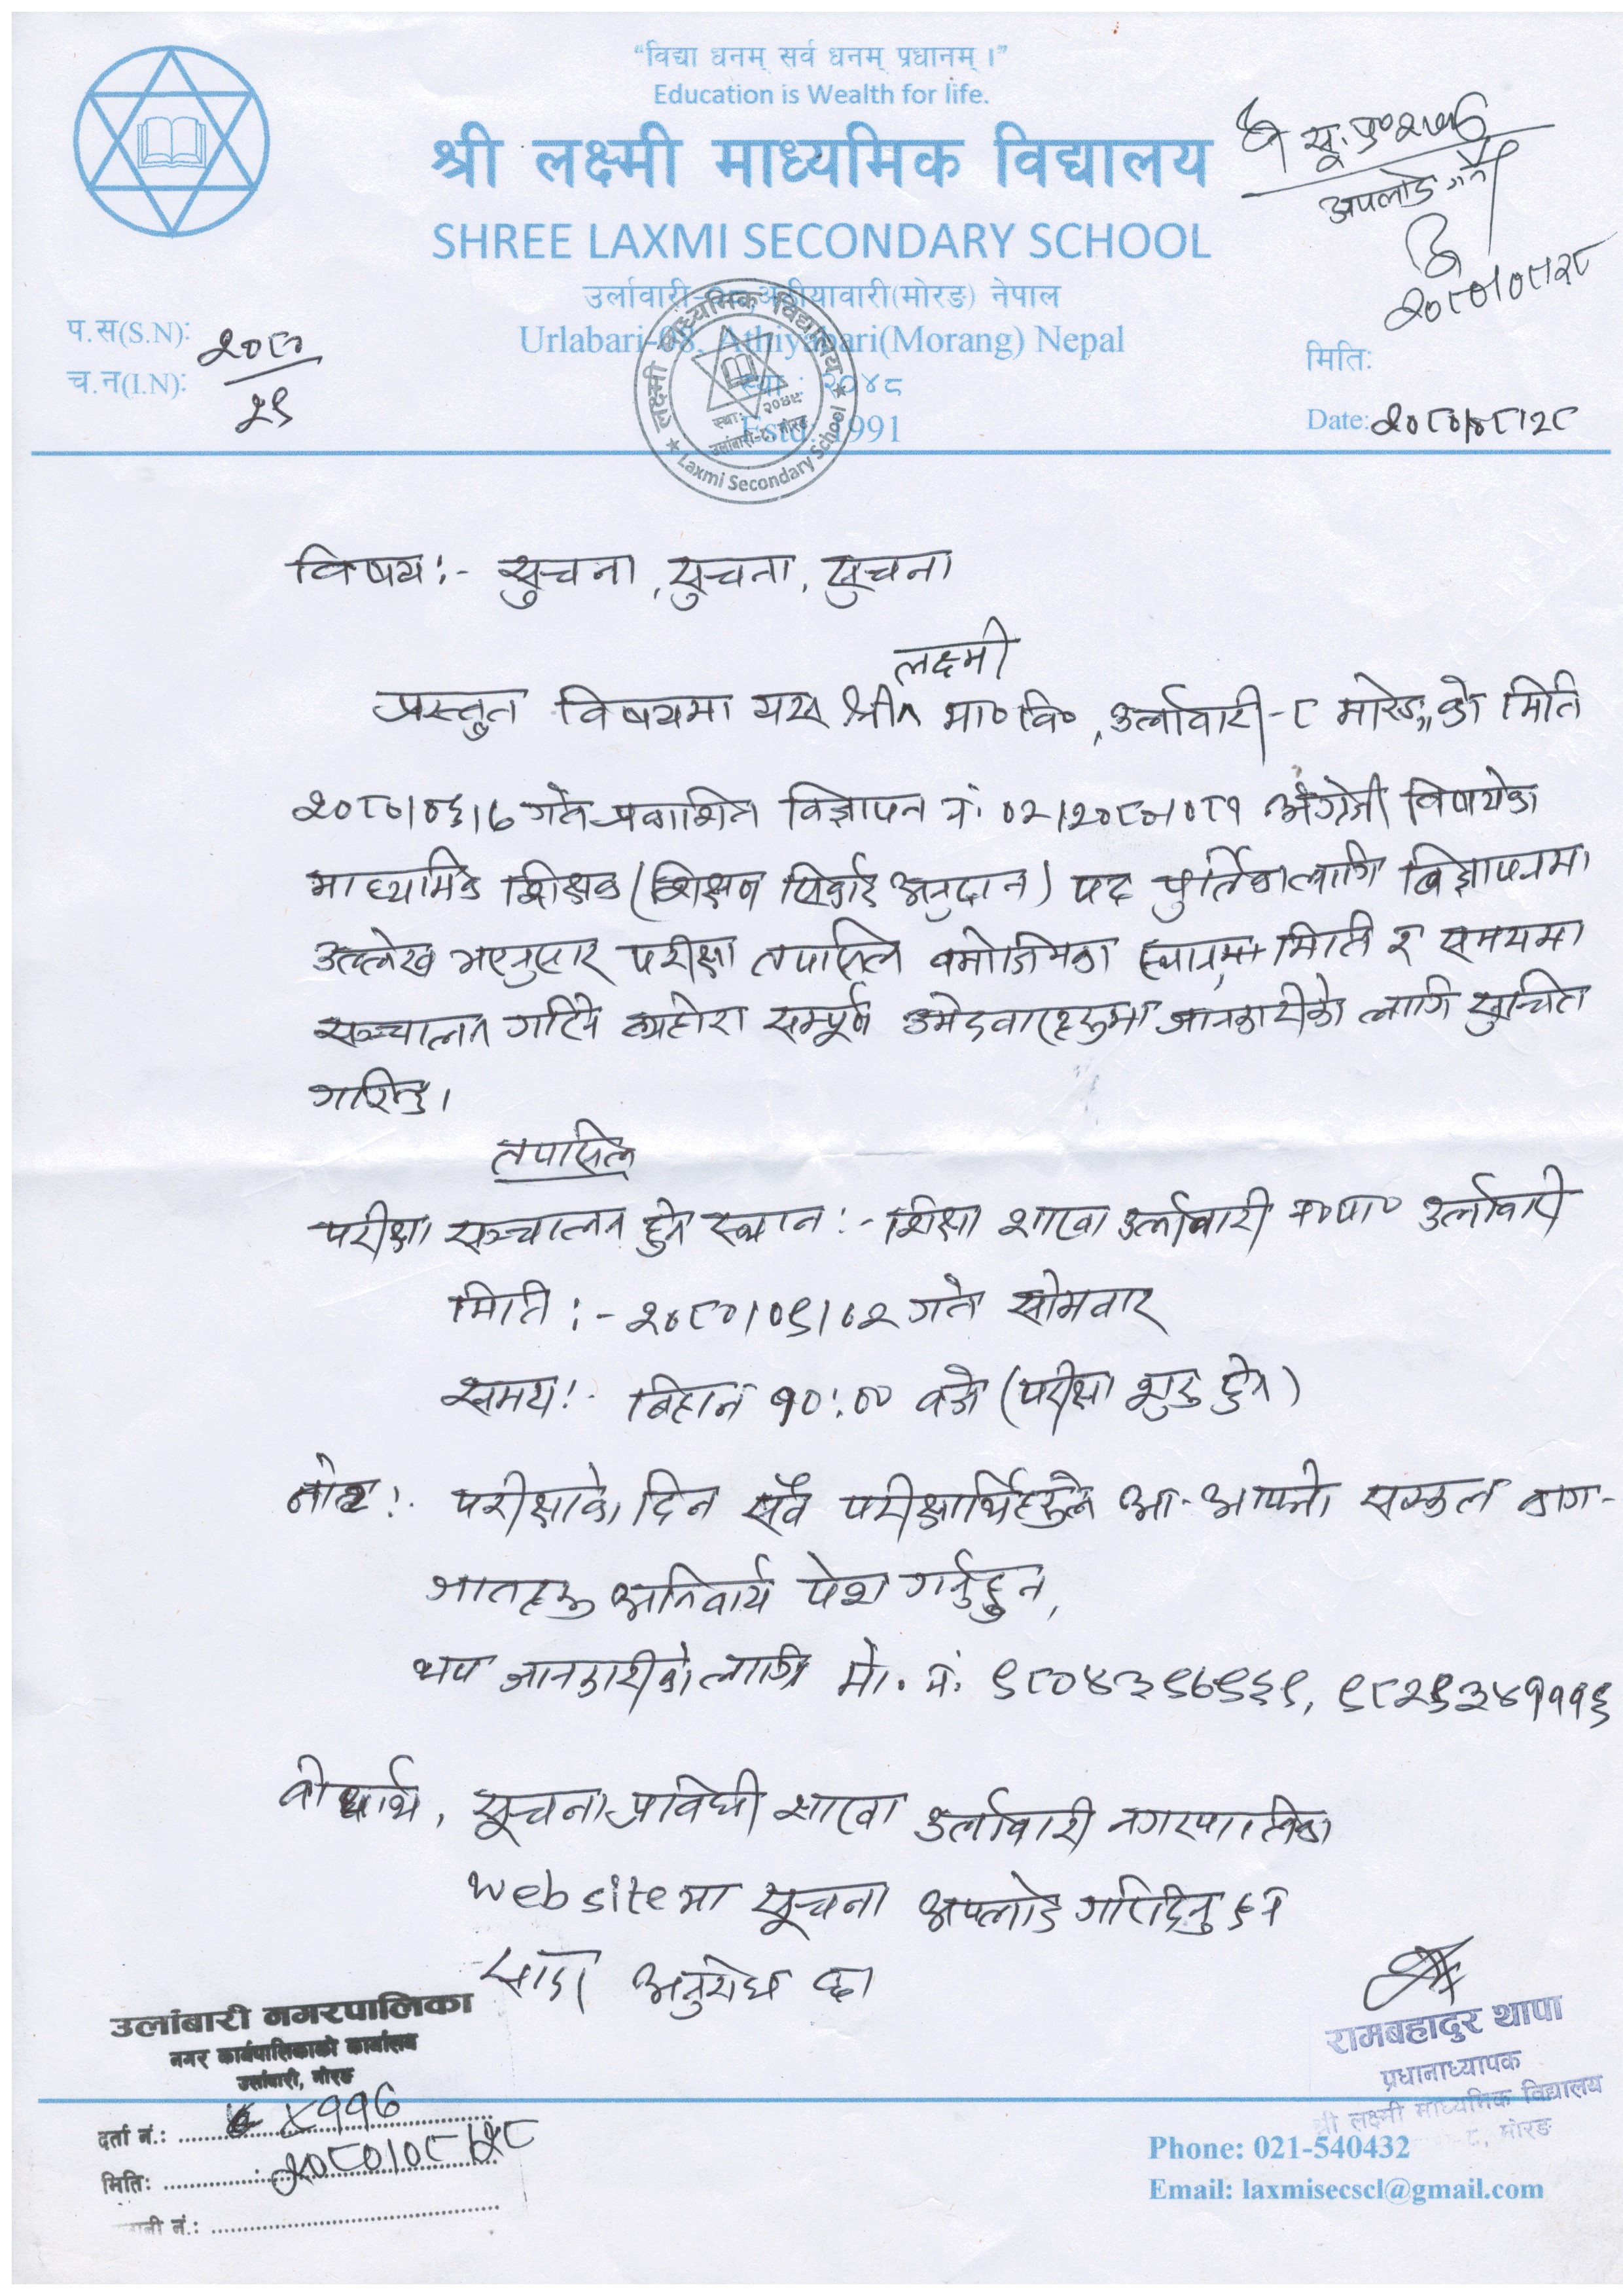 "विद्या धनम् सर्व धनम् प्रधानम् ।"
Education is Wealth for life.
श्री लक्ष्मी माध्यमिक विद्यालय
SHREE LAXMI SECONDARY SCHOOL
सू. प्र०
अपलोड गर्ने
२०८०।०८।२८
उर्लावारी-०८, अठीयावारी(मोरङ) नेपाल
Urlabari-08, Athiyabari(Morang) Nepal
स्था : २०४८
Estd: 1991
प.स(S.N): २०८०
च.न(I.N): २९
मिति:
Date: २०८०।०८।२८
लक्ष्मी माध्यमिक विद्यालय
स्था: २०४८
उर्लाबारी-८, मोरङ
Laxmi Secondary School
विषय:- सुचना, सुचना, सुचना
लक्ष्मी
प्रस्तुत विषयमा यस श्री मा०वि०, उर्लावारी-८ मोरङको मिति
२०८०।०६।७ गते प्रकाशित विज्ञापन नं. ०२।२०८०।०८१ अंग्रेजी विषयको
माध्यमिक शिक्षक (शिक्षण सिकाई अनुदान) पद पुर्तिकालागि विज्ञापनमा
उल्लेख भएनुसार परीक्षा तपासिल वमोजिमका स्थानमा मिति र समयमा
सञ्चालन गरिने व्यहोरा सम्पूर्ण उमेदवारहरुमा जानकारीको लागि सुचित
गरिन्छ।
तपासिल
परीक्षा सञ्चालन हुने स्थान:- शिक्षा शाखा उर्लावारी न०पा० उर्लावारी
मिति:- २०८०।०९।०२ गते सोमवार
समय:- बिहान १०:०० वजे (परीक्षा शुरु हुने)
नोट:- परीक्षाको दिन सवै परीक्षार्थिहरुले आ-आफ्नो सक्कल काग-
जातहरु अनिवार्य पेश गर्नुहुन,
थप जानकारीको लागि मो. नं. ९८०४३९७९६९, ९८२९३४१११६
वोधार्थ, सूचना प्रविधी साखा उर्लावारी नगरपालिका
websiteमा सूचना अपलोड गरिदिनु हुन
सादर अनुरोध छ।
उर्लाबारी नगरपालिका
नगर कार्यपालिकाको कार्यालय
उर्लाबारी, मोरङ
दर्ता नं.: ४११७
मिति: २०८०।०८।२८
नं.:
रामबहादुर थापा
प्रधानाध्यापक
श्री लक्ष्मी माध्यमिक विद्यालय
-८, मोरङ
Phone: 021-540432
Email: laxmisecscl@gmail.com